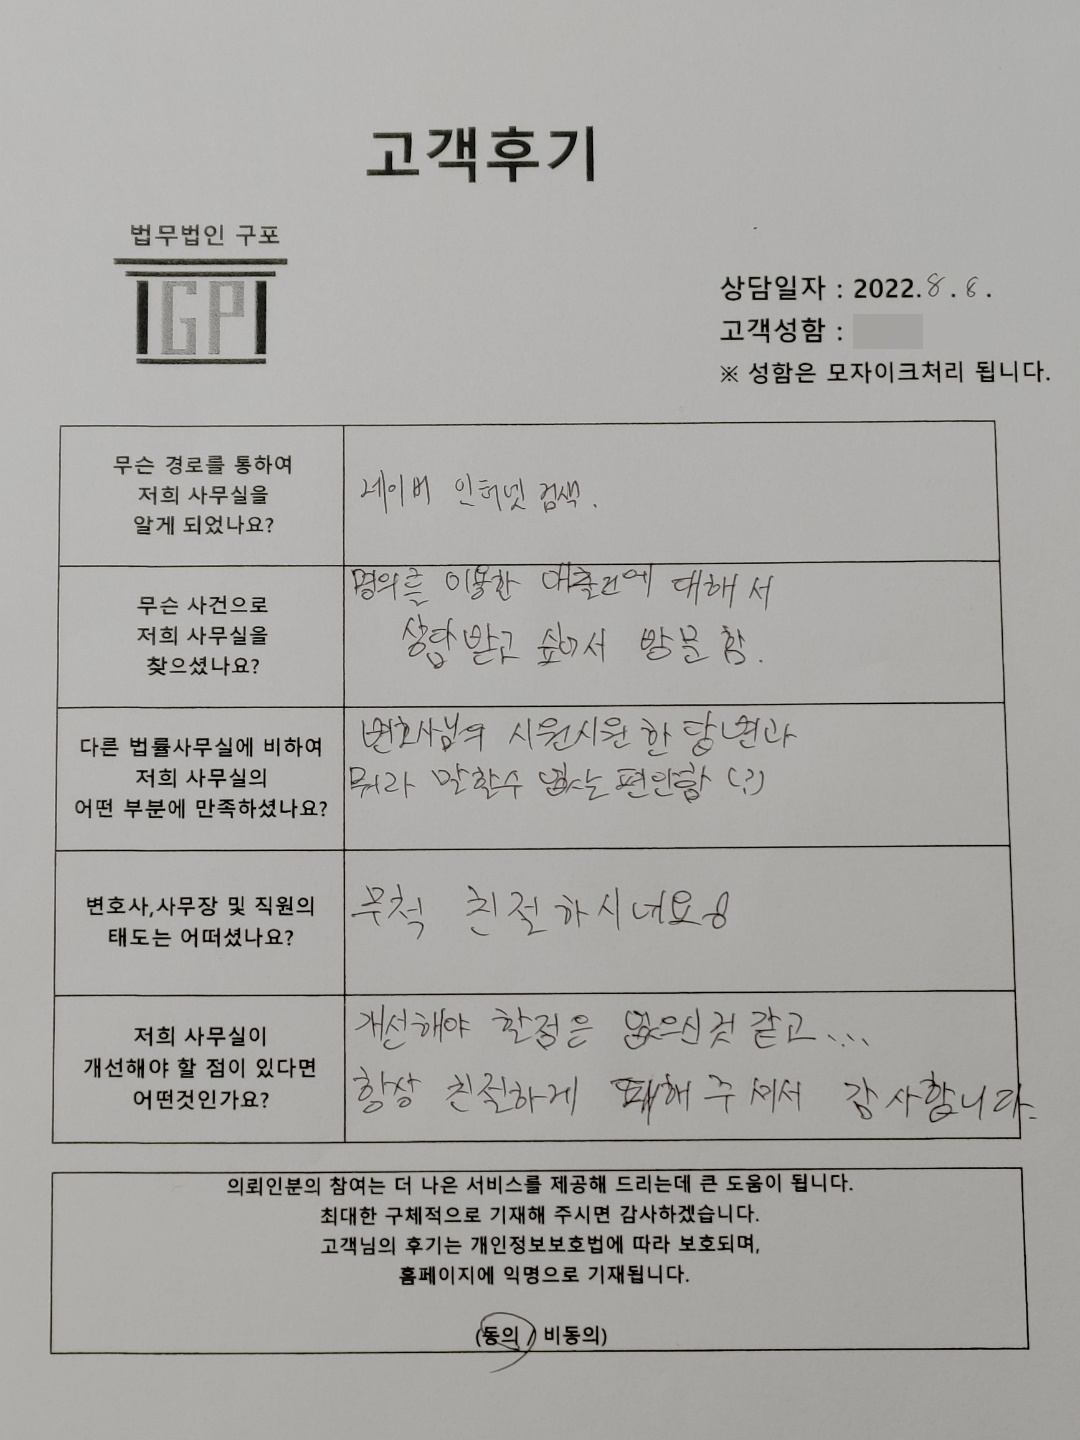 고객후기
법무법인 구포
GP
상담일자 : 2022. 8. 6.
고객성함 :
※ 성함은 모자이크처리 됩니다.
무슨 경로를 통하여
저희 사무실을
알게 되었나요?
네이버 인터넷 검색.
무슨 사건으로
저희 사무실을
찾으셨나요?
명의를 이용한 대출건에 대해서
상담 받고 싶어서 방문 함.
다른 법률사무실에 비하여
저희 사무실의
어떤 부분에 만족하셨나요?
변호사님의 시원시원 한 답변과
뭐라 말할수 없는 편안함 (?)
변호사,사무장 및 직원의
태도는 어떠셨나요?
무척 친절하시네요
저희 사무실이
개선해야 할 점이 있다면
어떤것인가요?
개선해야 할점은 없으신것 같고...
항상 친절하게 대해 주셔서 감사합니다.
의뢰인분의 참여는 더 나은 서비스를 제공해 드리는데 큰 도움이 됩니다.
최대한 구체적으로 기재해 주시면 감사하겠습니다.
고객님의 후기는 개인정보보호법에 따라 보호되며,
홈페이지에 익명으로 기재됩니다.
(동의 / 비동의)